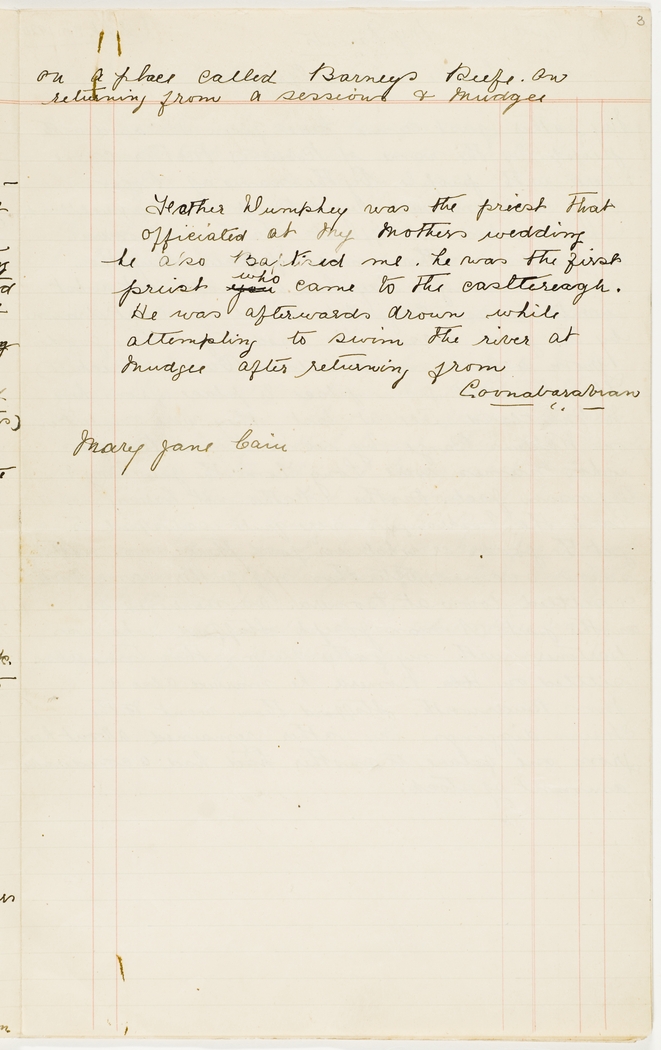 3
on a place called Barneys Reefe. on
returning from a sessions & Mudgee
Feather Dumphey was the priest that
officiated at My Mothers wedding
he also Baptised me. he was the first
priest you who came to the castlereagh.
He was afterwards drown while
attempting to swim the river at
Mudgee after returning from
Coonabarabran
Mary Jane Cain